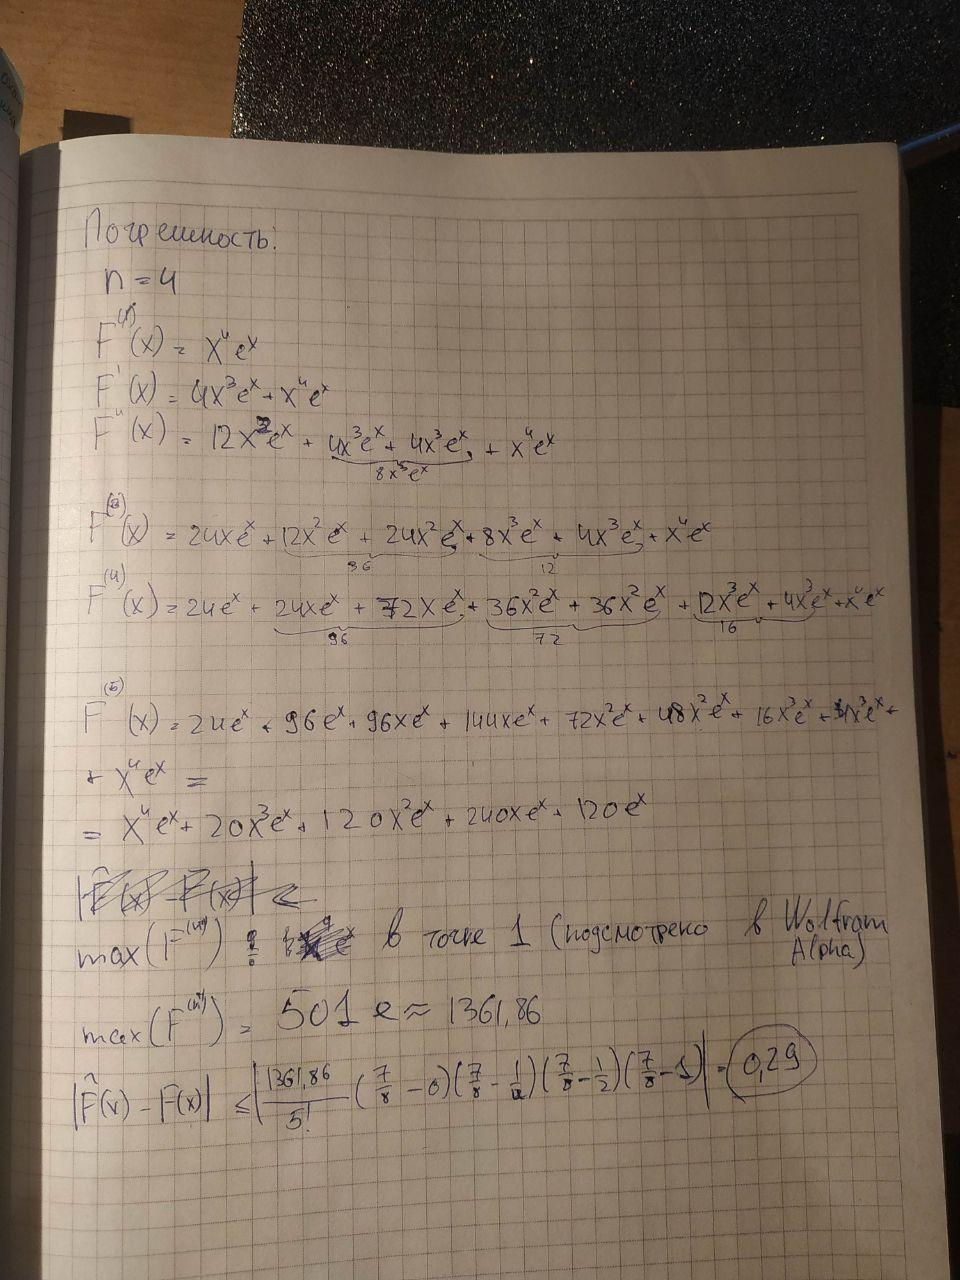 Погрешность:
n = 4
F(x) = x⁴eˣ
F'(x) = 4x³eˣ + x⁴eˣ
F''(x) = 12x²eˣ + 4x³eˣ + 4x³eˣ + x⁴eˣ
8x³eˣ
F⁽³⁾(x) = 24xeˣ + 12x²eˣ + 24x²eˣ + 8x³eˣ + 4x³eˣ + x⁴eˣ
36 12
F⁽⁴⁾(x) = 24eˣ + 24xeˣ + 72xeˣ + 36x²eˣ + 36x²eˣ + 12x³eˣ + 4x³eˣ + x⁴eˣ
96 72 16
F⁽⁵⁾(x) = 24eˣ + 96eˣ + 96xeˣ + 144xeˣ + 72x²eˣ + 48x²eˣ + 16x³eˣ + 4x³eˣ +
+ x⁴eˣ =
= x⁴eˣ + 20x³eˣ + 120x²eˣ + 240xeˣ + 120eˣ
max(F) : в точке 1 (подсмотрено в Wolfram
Alpha)
max(F) = 501e ≈ 1361,86
|F̂(x) - F(x)| ≤ |1361,86/5! (7/8 - 0)(7/8 - 1/4)(7/8 - 1/2)(7/8 - 1)| = 0,29